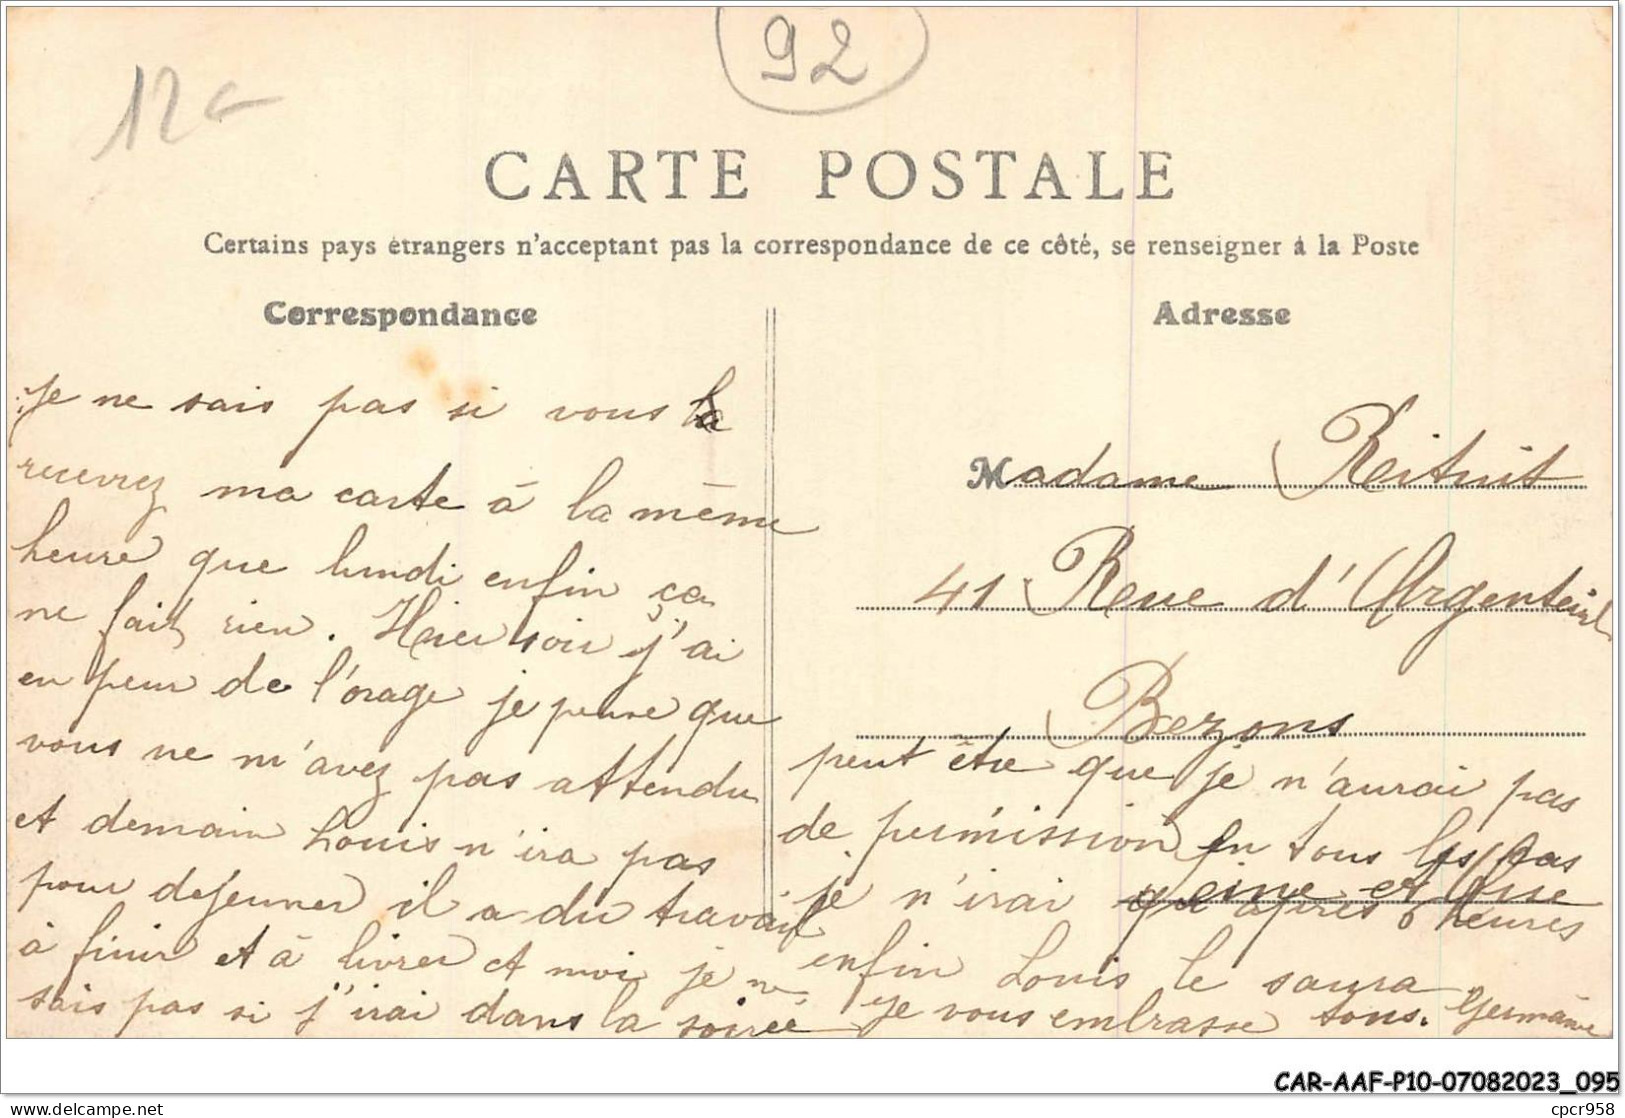 92
12
CARTE POSTALE
Certains pays étrangers n'acceptant pas la correspondance de ce côté, se renseigner à la Poste
Correspondance
Adresse
Je ne sais pas si vous
recevrez ma carte à la même
heure que lundi enfin ça
ne fait rien. Hier soir j'ai
eu peur de l'orage je pense que
vous ne m'avez pas attendu
et demain Louis n'ira pas
pour dejeuner il a du travail
à finir et à livrer et moi je ne
sais pas si j'irai dans la soirée
Madame Reitruit
41 Rue d'Argenteuil
Bezons
peut être que je n'aurai pas
de permission en tous les cas
je n'irai que après 6 heures
Seine et Oise
enfin Louis le saura
Je vous embrasse tous. Germaine
CAR-AAF-P10-07082023_095
delcampe.net
cpcr958